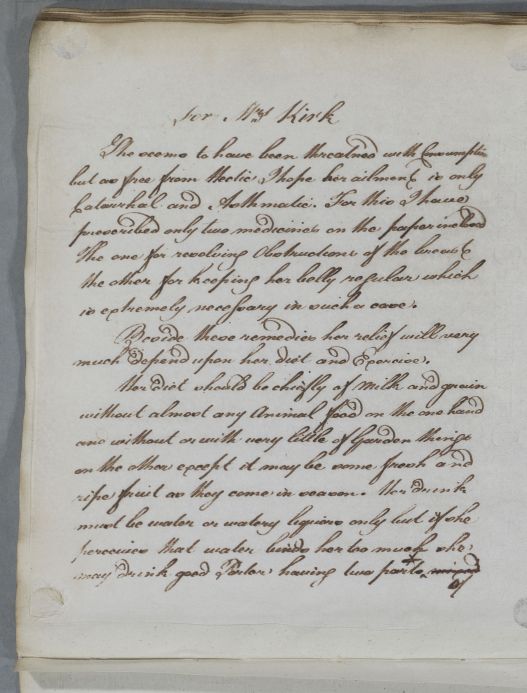 For Mrs Kirk
She seems to have been threatned with Consumption
but as free from Hectic I hope her ailment is only
Catarrhal and Asthmatic. For this I have
prescribed only two medicines on the paper inclosed
The one for resolving Obstructions of the breast &
the other for keeping her belly regular which
is extremely necessary in such a case.
Beside these remedies her relief will very
much depend upon her diet and Exercise.
Her diet should be chiefly of Milk and grain
without almost any Animal food on the one hand
and without or with very little of Garden things
on the other except it may be some fresh and
ripe fruit as they come in season. Her drink
must be water or watery liquors only but if she
perceives that water binds her too much she
may drink good Porter having two parts
of